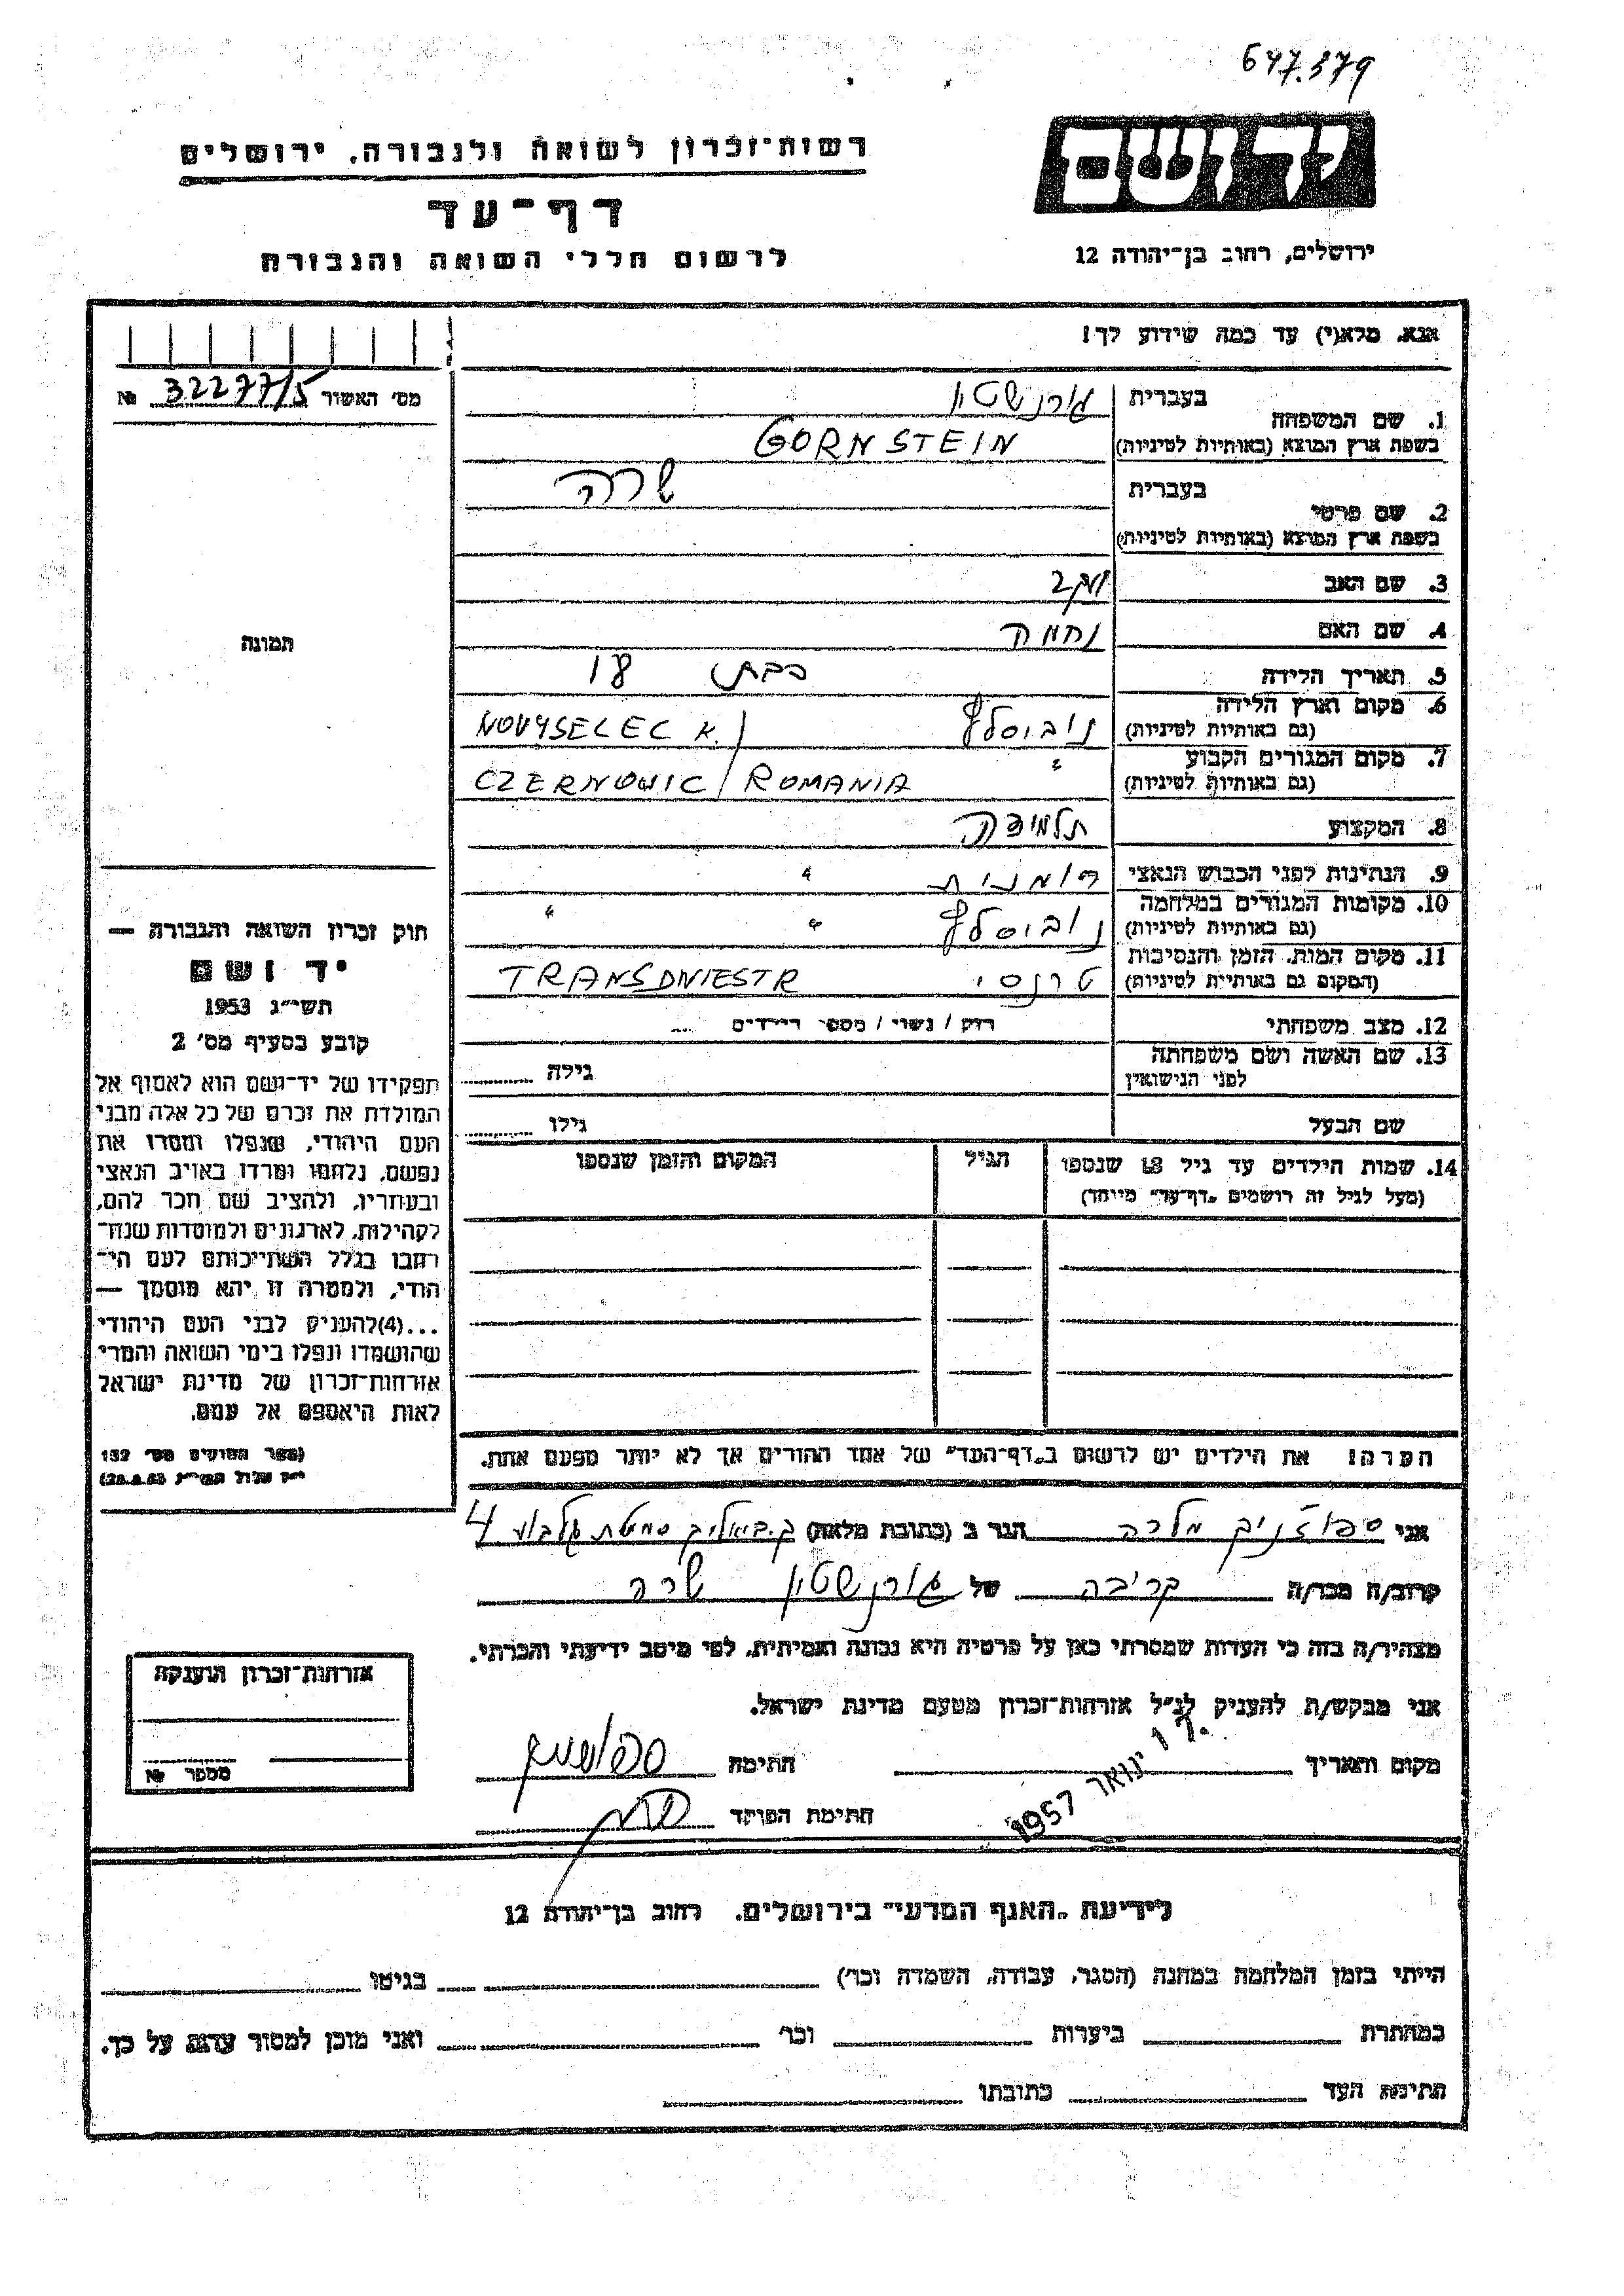 647.379
רשות־זכרון לשואה ולגבורה, ירושלים
יד ושם
דף־עד
לרשום חללי השואה והגבורה
ירושלים, רחוב בן־יהודה 12
אנא, מלא(י) עד כמה שידוע לך!
מס׳ האשור 32277/5 №
1. שם המשפחה בעברית גורנשטין
בשפת ארץ המוצא (באותיות לטיניות) GORNSTEIN
2. שם פרטי בעברית שרה
בשפת ארץ המוצא (באותיות לטיניות)
3. שם האב יעקב
4. שם האם נחמה
5. תאריך הלידה כבת 18
6. מקום וארץ הלידה (גם באותיות לטיניות) נובוסלץ NOVYSELEC K./
7. מקום המגורים הקבוע (גם באותיות לטיניות) " CZERNOWIC / ROMANIA
8. המקצוע תלמידה
9. הנתינות לפני הכבוש הנאצי רומנית "
10. מקומות המגורים במלחמה (גם באותיות לטיניות) נובוסלץ " "
11. מקום המות, הזמן והנסיבות (המקום גם באותיות לטיניות) טרנסני TRANSDNIESTR
12. מצב משפחתי רוק / נשוי / מספר הילדים
13. שם האשה ושם משפחתה לפני הנישואין גילה
שם הבעל גילו
14. שמות הילדים עד גיל 18 שנספו הגיל המקום והזמן שנספו
(מעל לגיל זה רושמים "דף־עד" מיוחד)
תמונה
חוק זכרון השואה והגבורה —
יד ושם
תשי״ג 1953
קובע בסעיף מס׳ 2
תפקידו של יד־ושם הוא לאסוף אל
המולדת את זכרם של כל אלה מבני
העם היהודי, שנפלו ומסרו את
נפשם, נלחמו ומרדו באויב הנאצי
ובעוזריו, ולהציב שם וזכר להם,
לקהילות, לארגונים ולמוסדות שנח־
רבו בגלל השתייכותם לעם הי־
הודי, ולמטרה זו יהא מוסמך —
...(4) להעניק לבני העם היהודי
שהושמדו ונפלו בימי השואה והמרי
אזרחות־זכרון של מדינת ישראל
לאות היאספם אל עמם.
(ספר החוקים מס׳ 132
י״ז אלול תשי״ג 28.8.53)
הערה! את הילדים יש לרשום ב"דף־העד" של אחד ההורים אך לא יותר מפעם אחת.
אני מלכה הגר ב (כתובת מלאה) ק.ביאליק סמטת גלבוע 4
קרוב/ה מכר/ה קריבה של גורנשטין שרה
מצהיר/ה בזה כי העדות שמסרתי כאן על פרטיה היא נכונה ואמיתית, לפי מיטב ידיעתי והכרתי.
אני מבקש/ת להעניק לנ״ל אזרחות־זכרון מטעם מדינת ישראל.
מקום ותאריך ינואר 1957 חתימה
חתימת הפוקד
אזרחות־זכרון הוענקה
מספר №
לידיעת "האגף המדעי" בירושלים, רחוב בן־יהודה 12
הייתי בזמן המלחמה במחנה (הסגר, עבודה, השמדה וכו׳) בגיטו
במחתרת ביערות וכו׳ ואני מוכן למסור עדות על כך.
חתימת העד כתובתו